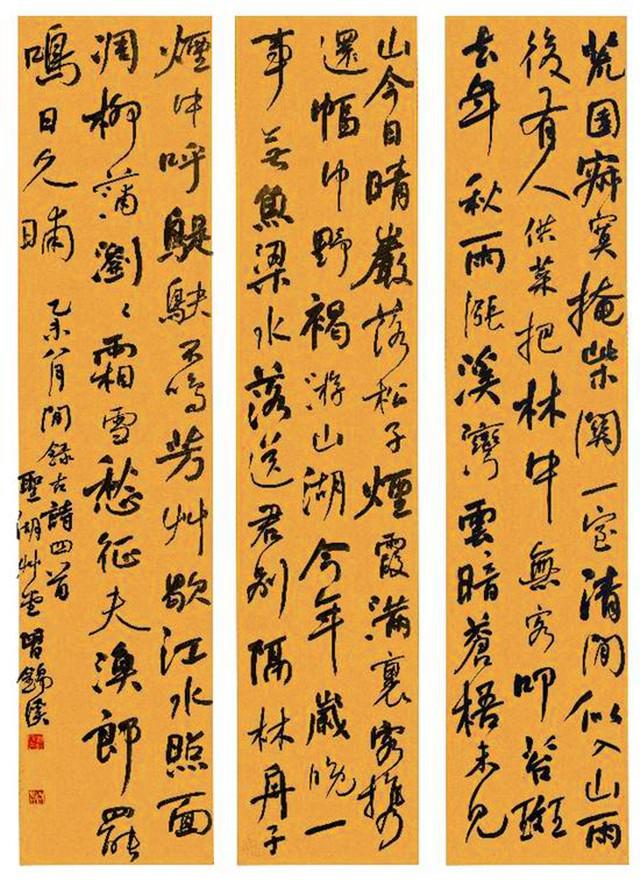 荒園寂寞掩柴關一室清閒似入山雨
後有人供菜把林中無客叩苔斑
去年秋雨漲溪灣雲暗蒼梧未見
山今日晴巖落松子煙霞滿裹客携
還幅巾野褐游山湖今年歲晚一
事无魚梁水落送君別隔林舟子
煙中呼鶗鴃不鳴芳艸歇江水照面
凋柳蒲瀏〻霜雪愁征夫漁郎罷
鳴日久晡
乙未八月閒錄古詩四首
聖湖艸堂曾錦溪